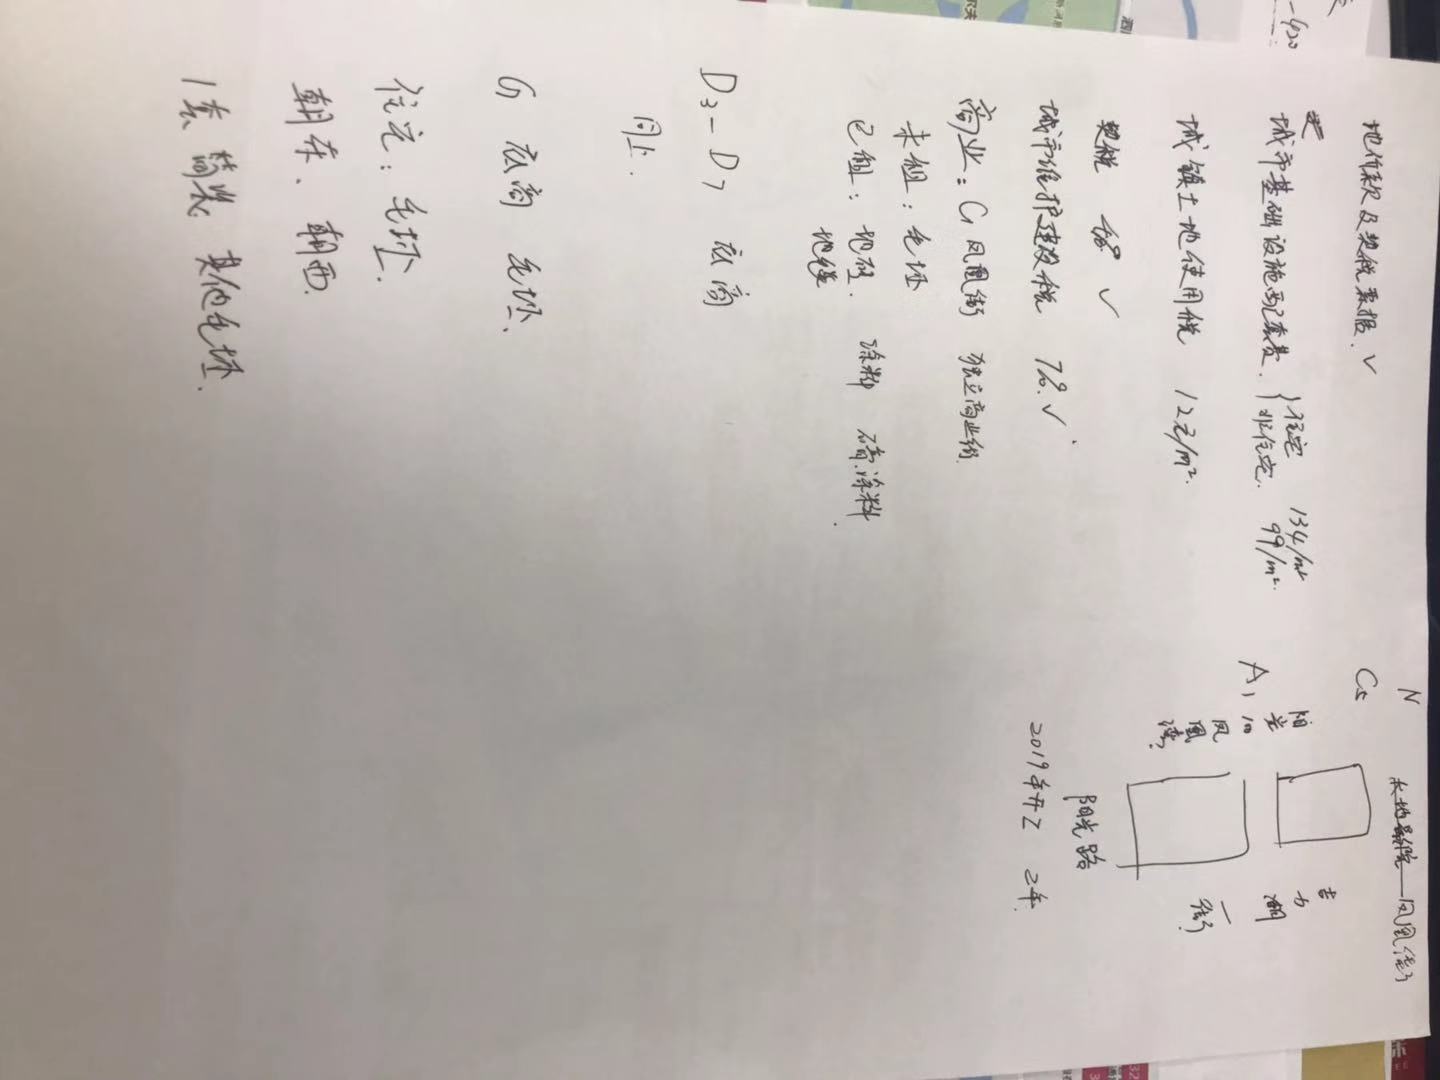 地价款及契税票据.√
城市基础设施配套费. {住宅 134/m²
非住宅. 99/m².
城镇土地使用税 12元/m².
契税 √
城市维护建设税 7%.√
商业: G 凤凰街 独立商业街
未租: 毛坯
已租: 地砖. 涂料 石膏.涂料.
地毯
D3-D7 底商
同上.
G 底商 毛坯.
住宅: 毛坯.
朝东、朝西.
1套 简装. 其他毛坯.
N
C5
凤凰街
A1
阳光
凤凰湾
吉力湖
一街
阳光路
2019年开工 2年.
-420